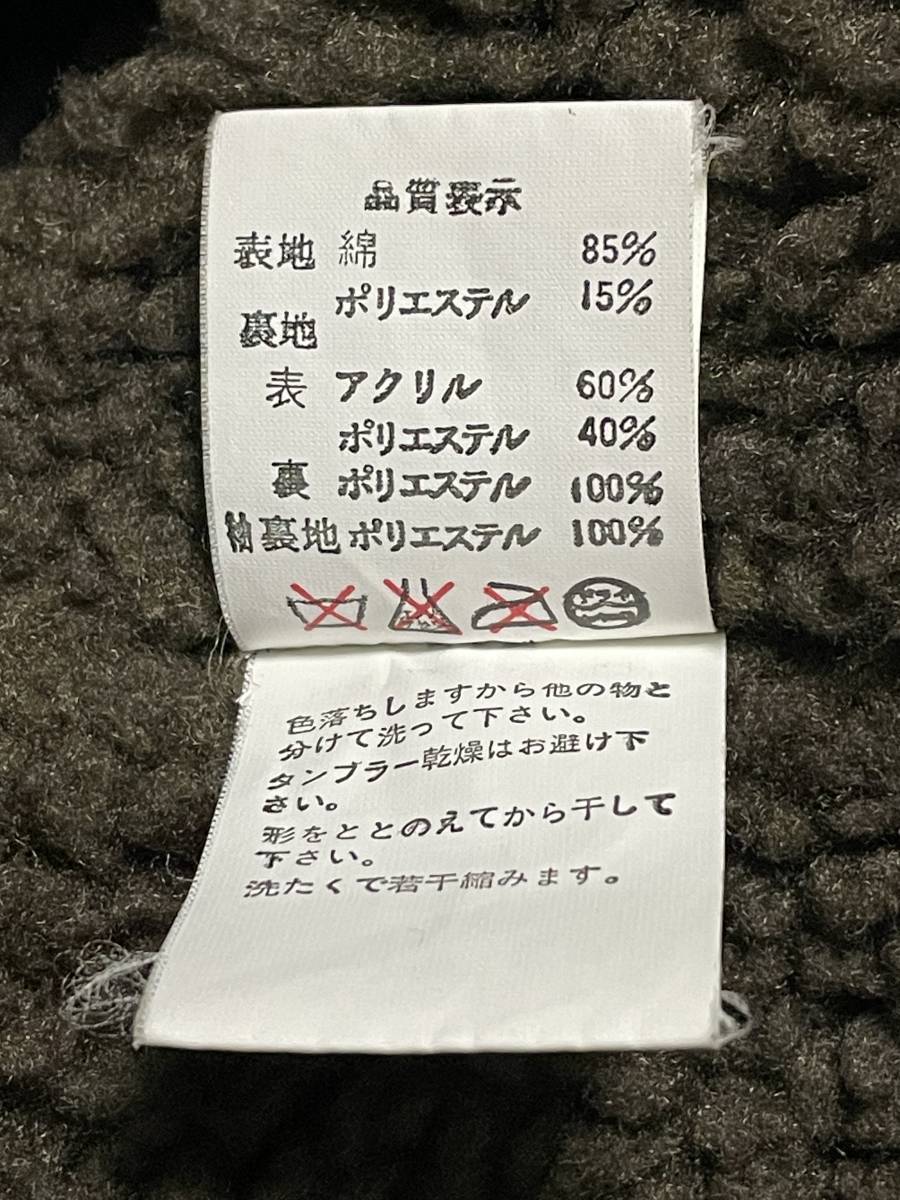 品質表示
表地 綿 85%
ポリエステル 15%
裏地
表 アクリル 60%
ポリエステル 40%
裏 ポリエステル 100%
袖裏地 ポリエステル 100%
ドライ
色落ちしますから他の物と
分けて洗って下さい。
タンブラー乾燥はお避け下
さい。
形をととのえてから干して
下さい。
洗たくで若干縮みます。